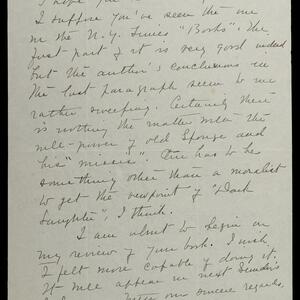 I suppose you've seen the one
in the N.Y. Times "Books". The
first part of it is very good indeed
but the author's conclusions in
the last paragraph seem to me
rather sweeping. Certainly there
is nothing the matter with the
-power of old Sponge and
his "missis". One has to be
something other than a moralist
to get the viewpoint of "Dark
Laughter", I think.
I am about to begin on
my review of your book. I wish
I felt more capable of doing it.
It will appear in next Sunday's
our sincere regards,